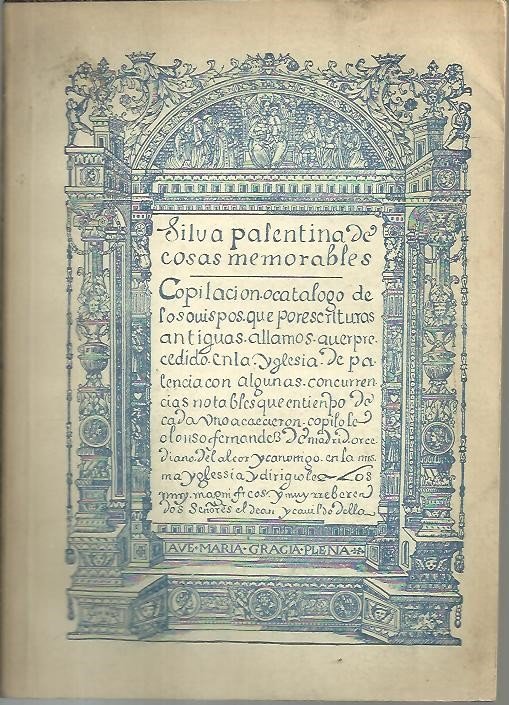 Silva palentina de
cosas memorables
Copilacion. o catalogo de
los ouispos. que por escrituras
antiguas. allamos. auer pre
cedido. en la Yglesia de pa
lencia con algunas. concurren
cias notables que en tienpo de
cada vno acaecieron. copilo le
alonso fernandes de madrid arce
diano del alcor y canonigo. en la mis
ma yglessia y dirigiole Los
muy. magnificos y muy rreberen
dos Señores el dean y cauildo della
AVE · MARIA · GRACIA · PLENA